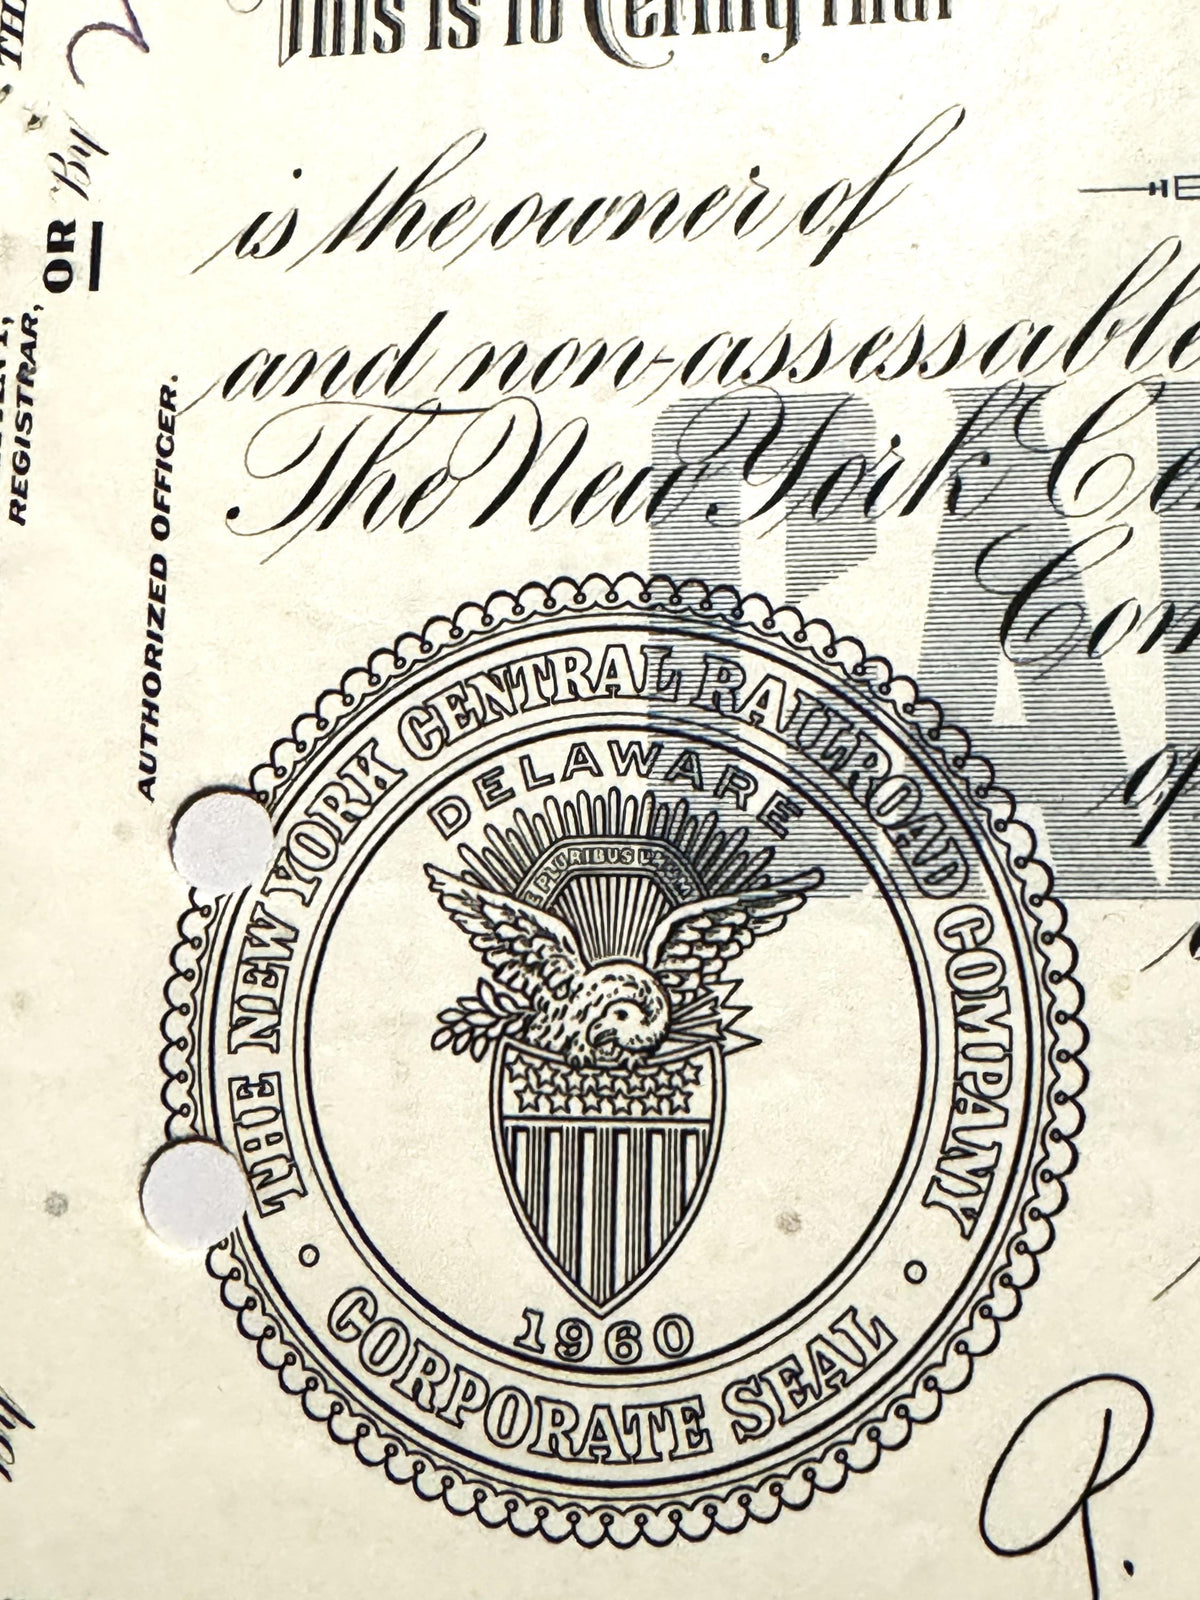 This is to Certify that
is the owner of
and non-assessable
The New York
THE NEW YORK CENTRAL RAILROAD COMPANY
DELAWARE
E PLURIBUS UNUM
1960
CORPORATE SEAL
OR By
REGISTRAR,
AUTHORIZED OFFICER.